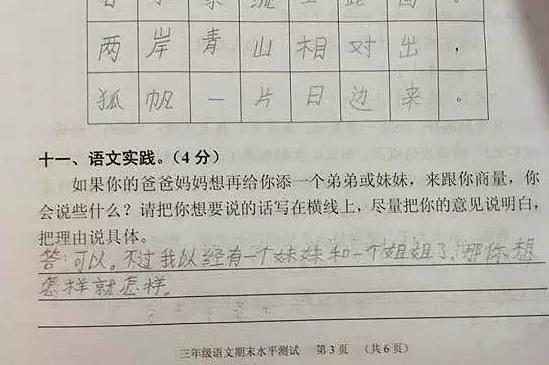 两岸青山相对出，
狐帆一片日边来。
十一、语文实践。（4分）
如果你的爸爸妈妈想再给你添一个弟弟或妹妹，来跟你商量，你
会说些什么？请把你想要说的话写在横线上，尽量把你的意见说明白，
把理由说具体。
答：可以。不过我以经有一个妹妹和一个姐姐了。那你想
怎样就怎样。
三年级语文期末水平测试 第3页 （共6页）